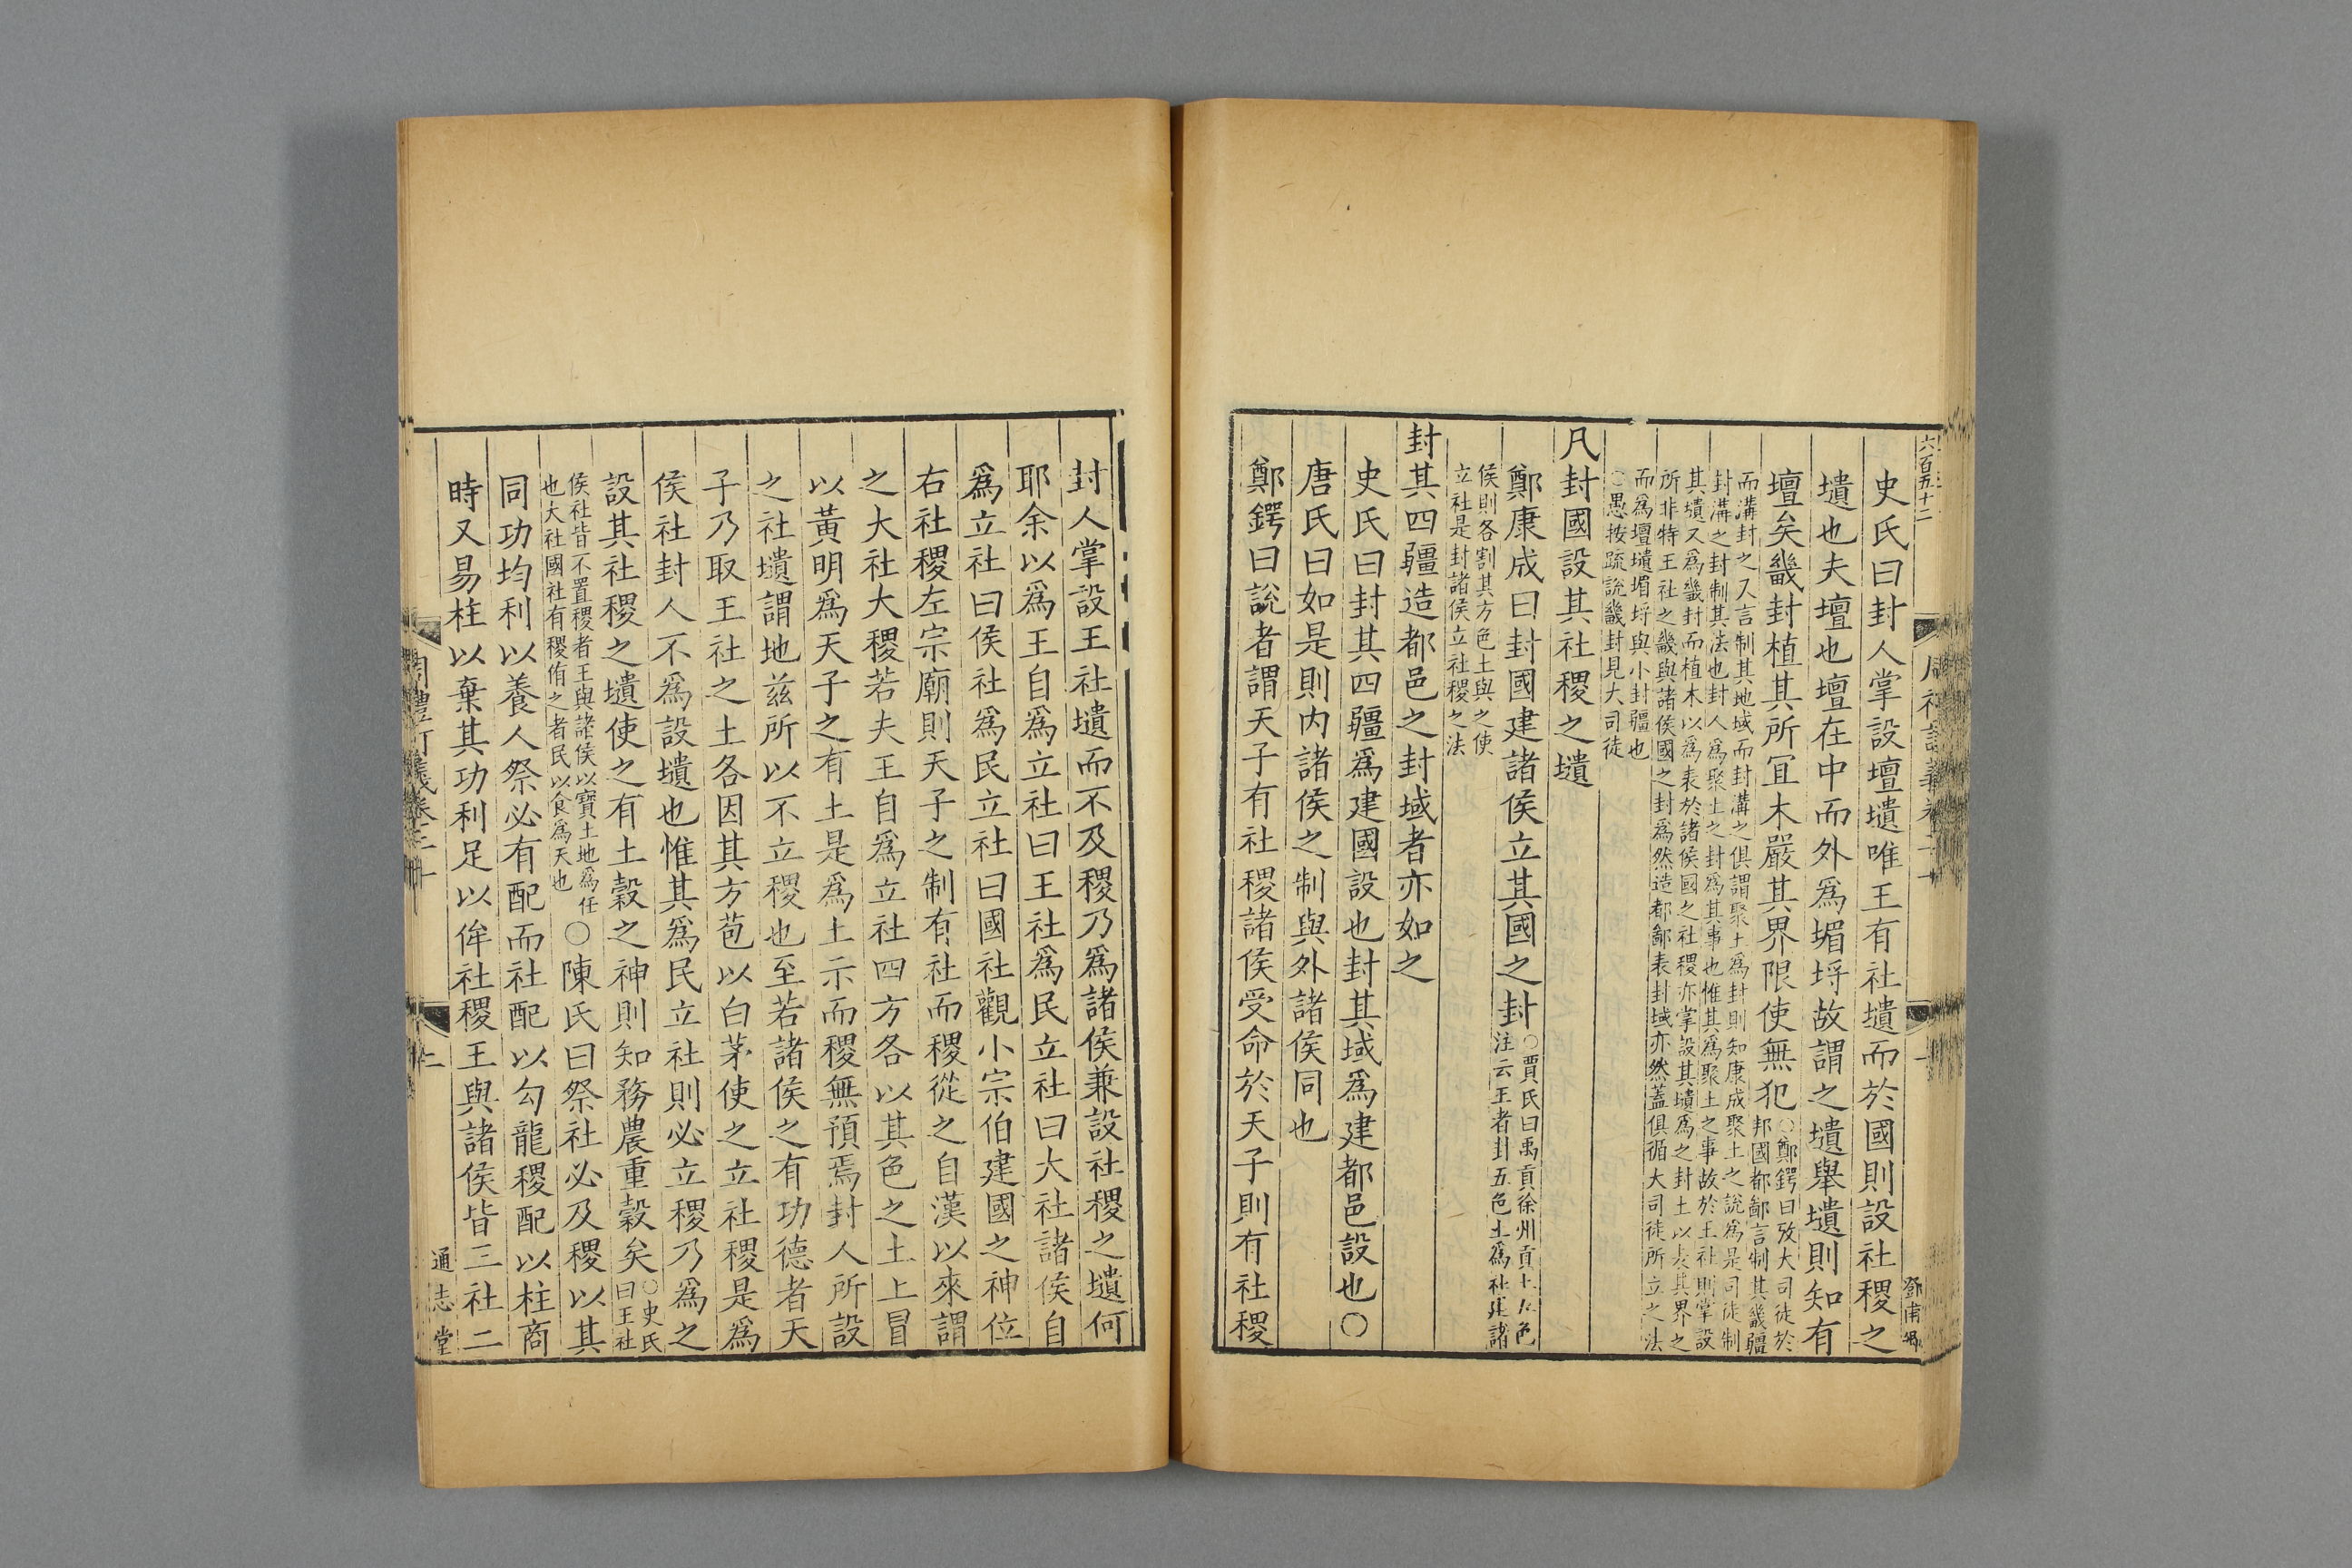 六百五十二
史氏曰封人掌設壇壝唯王有社壝而於國則設社稷之
壝也夫壇也壇在中而外爲堳埒故謂之壝舉壝則知有
壇矣畿封植其所宜木嚴其界限使無犯○鄭鍔曰攷大司徒於
邦國都鄙言制其畿疆
而溝封之又言制其地域而封溝之俱謂聚土爲封則知康成聚土之說爲是司徒制
封溝之封制其法也封人爲聚土之封爲其事也惟其爲聚土之事故於王社則掌設
其壝又爲畿封而植木以爲表於諸侯國之社稷亦掌設其壝爲之封土以表其界之
所非特王社之畿與諸侯國之封爲然造都鄙表封域亦然蓋俱循大司徒所立之法
而爲壇壝堳埒與小封疆也
○愚按疏說畿封見大司徒
凡封國設其社稷之壝
鄭康成曰封國建諸侯立其國之封○賈氏曰禹貢徐州貢土五色
注云王者封五色土爲社建諸
侯則各割其方色土與之使
立社是封諸侯立社稷之法
封其四疆造都邑之封域者亦如之
史氏曰封其四疆爲建國設也封其域爲建都邑設也○
唐氏曰如是則内諸侯之制與外諸侯同也
鄭鍔曰說者謂天子有社稷諸侯受命於天子則有社稷
封人掌設王社壝而不及稷乃爲諸侯兼設社稷之壝何
耶余以爲王自爲立社曰王社爲民立社曰大社諸侯自
爲立社曰侯社爲民立社曰國社觀小宗伯建國之神位
右社稷左宗廟則天子之制有社而稷從之自漢以來謂
之大社大稷若夫王自爲立社四方各以其色之土上冒
以黃明爲天子之有土是爲土示而稷無預焉封人所設
之社壝謂地兹所以不立稷也至若諸侯之有功德者天
子乃取王社之土各因其方苞以白茅使之立社稷是爲
侯社封人不爲設壝也惟其爲民立社則必立稷乃爲之
設其社稷之壝使之有土穀之神則知務農重穀矣○史氏
曰王社
侯社皆不置稷者王與諸侯以寶土地爲任
也大社國社有稷侑之者民以食爲天也○陳氏曰祭社必及稷以其
同功均利以養人祭必有配而社配以勾龍稷配以柱商
時又易柱以棄其功利足以侔社稷王與諸侯皆三社二
通志堂